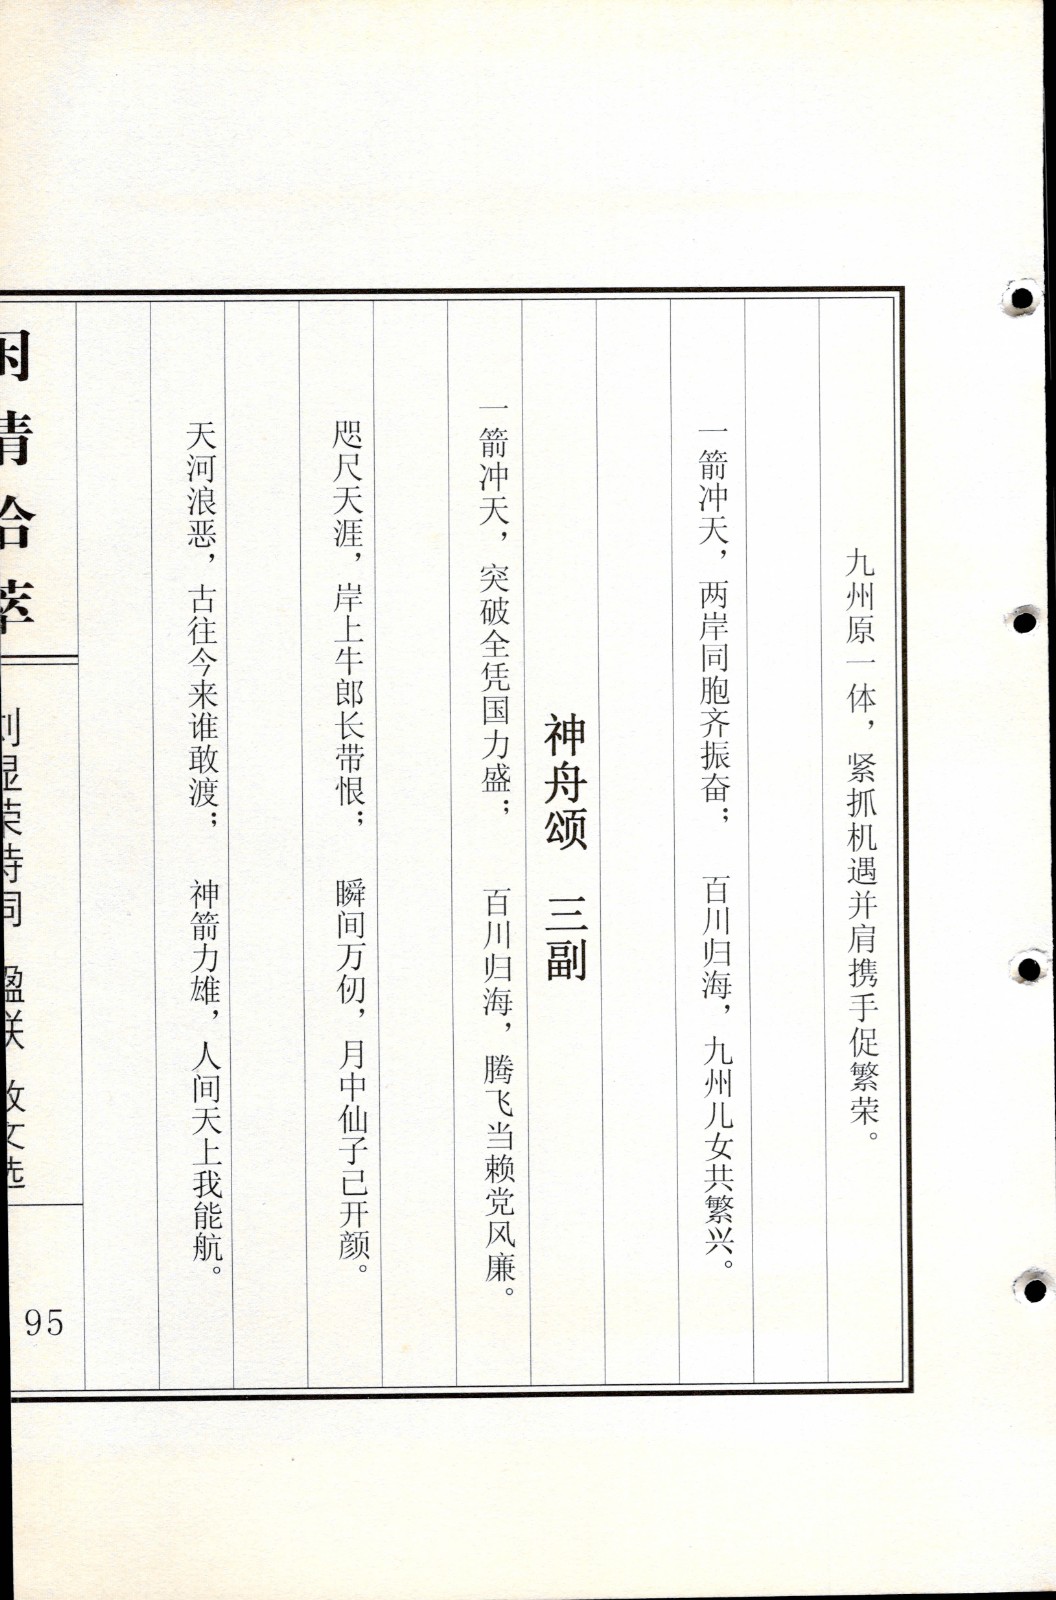 九州原一体，紧抓机遇并肩携手促繁荣。
一箭冲天，两岸同胞齐振奋；　百川归海，九州儿女共繁兴。
神舟颂　三副
一箭冲天，突破全凭国力盛；　百川归海，腾飞当赖党风廉。
咫尺天涯，岸上牛郎长带恨；　瞬间万仞，月中仙子已开颜。
天河浪恶，古往今来谁敢渡；　神箭力雄，人间天上我能航。
闲情拾萃
刘显荣诗词　盈联　散文选
95